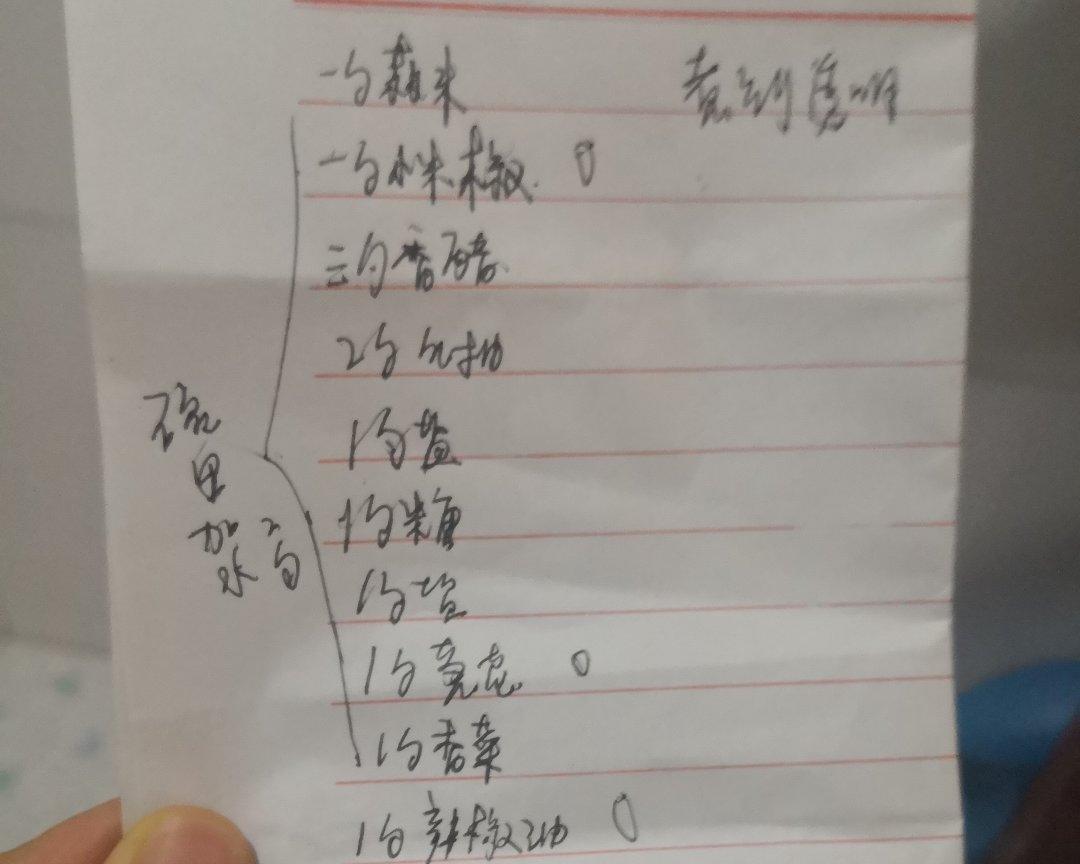 一勺蒜末
煮到透明
一勺小米椒
三勺香醋
2勺生抽
1勺盐
1勺糖
1勺盐
1勺
1勺香菜
1勺辣椒油
碗里
加二
水勺